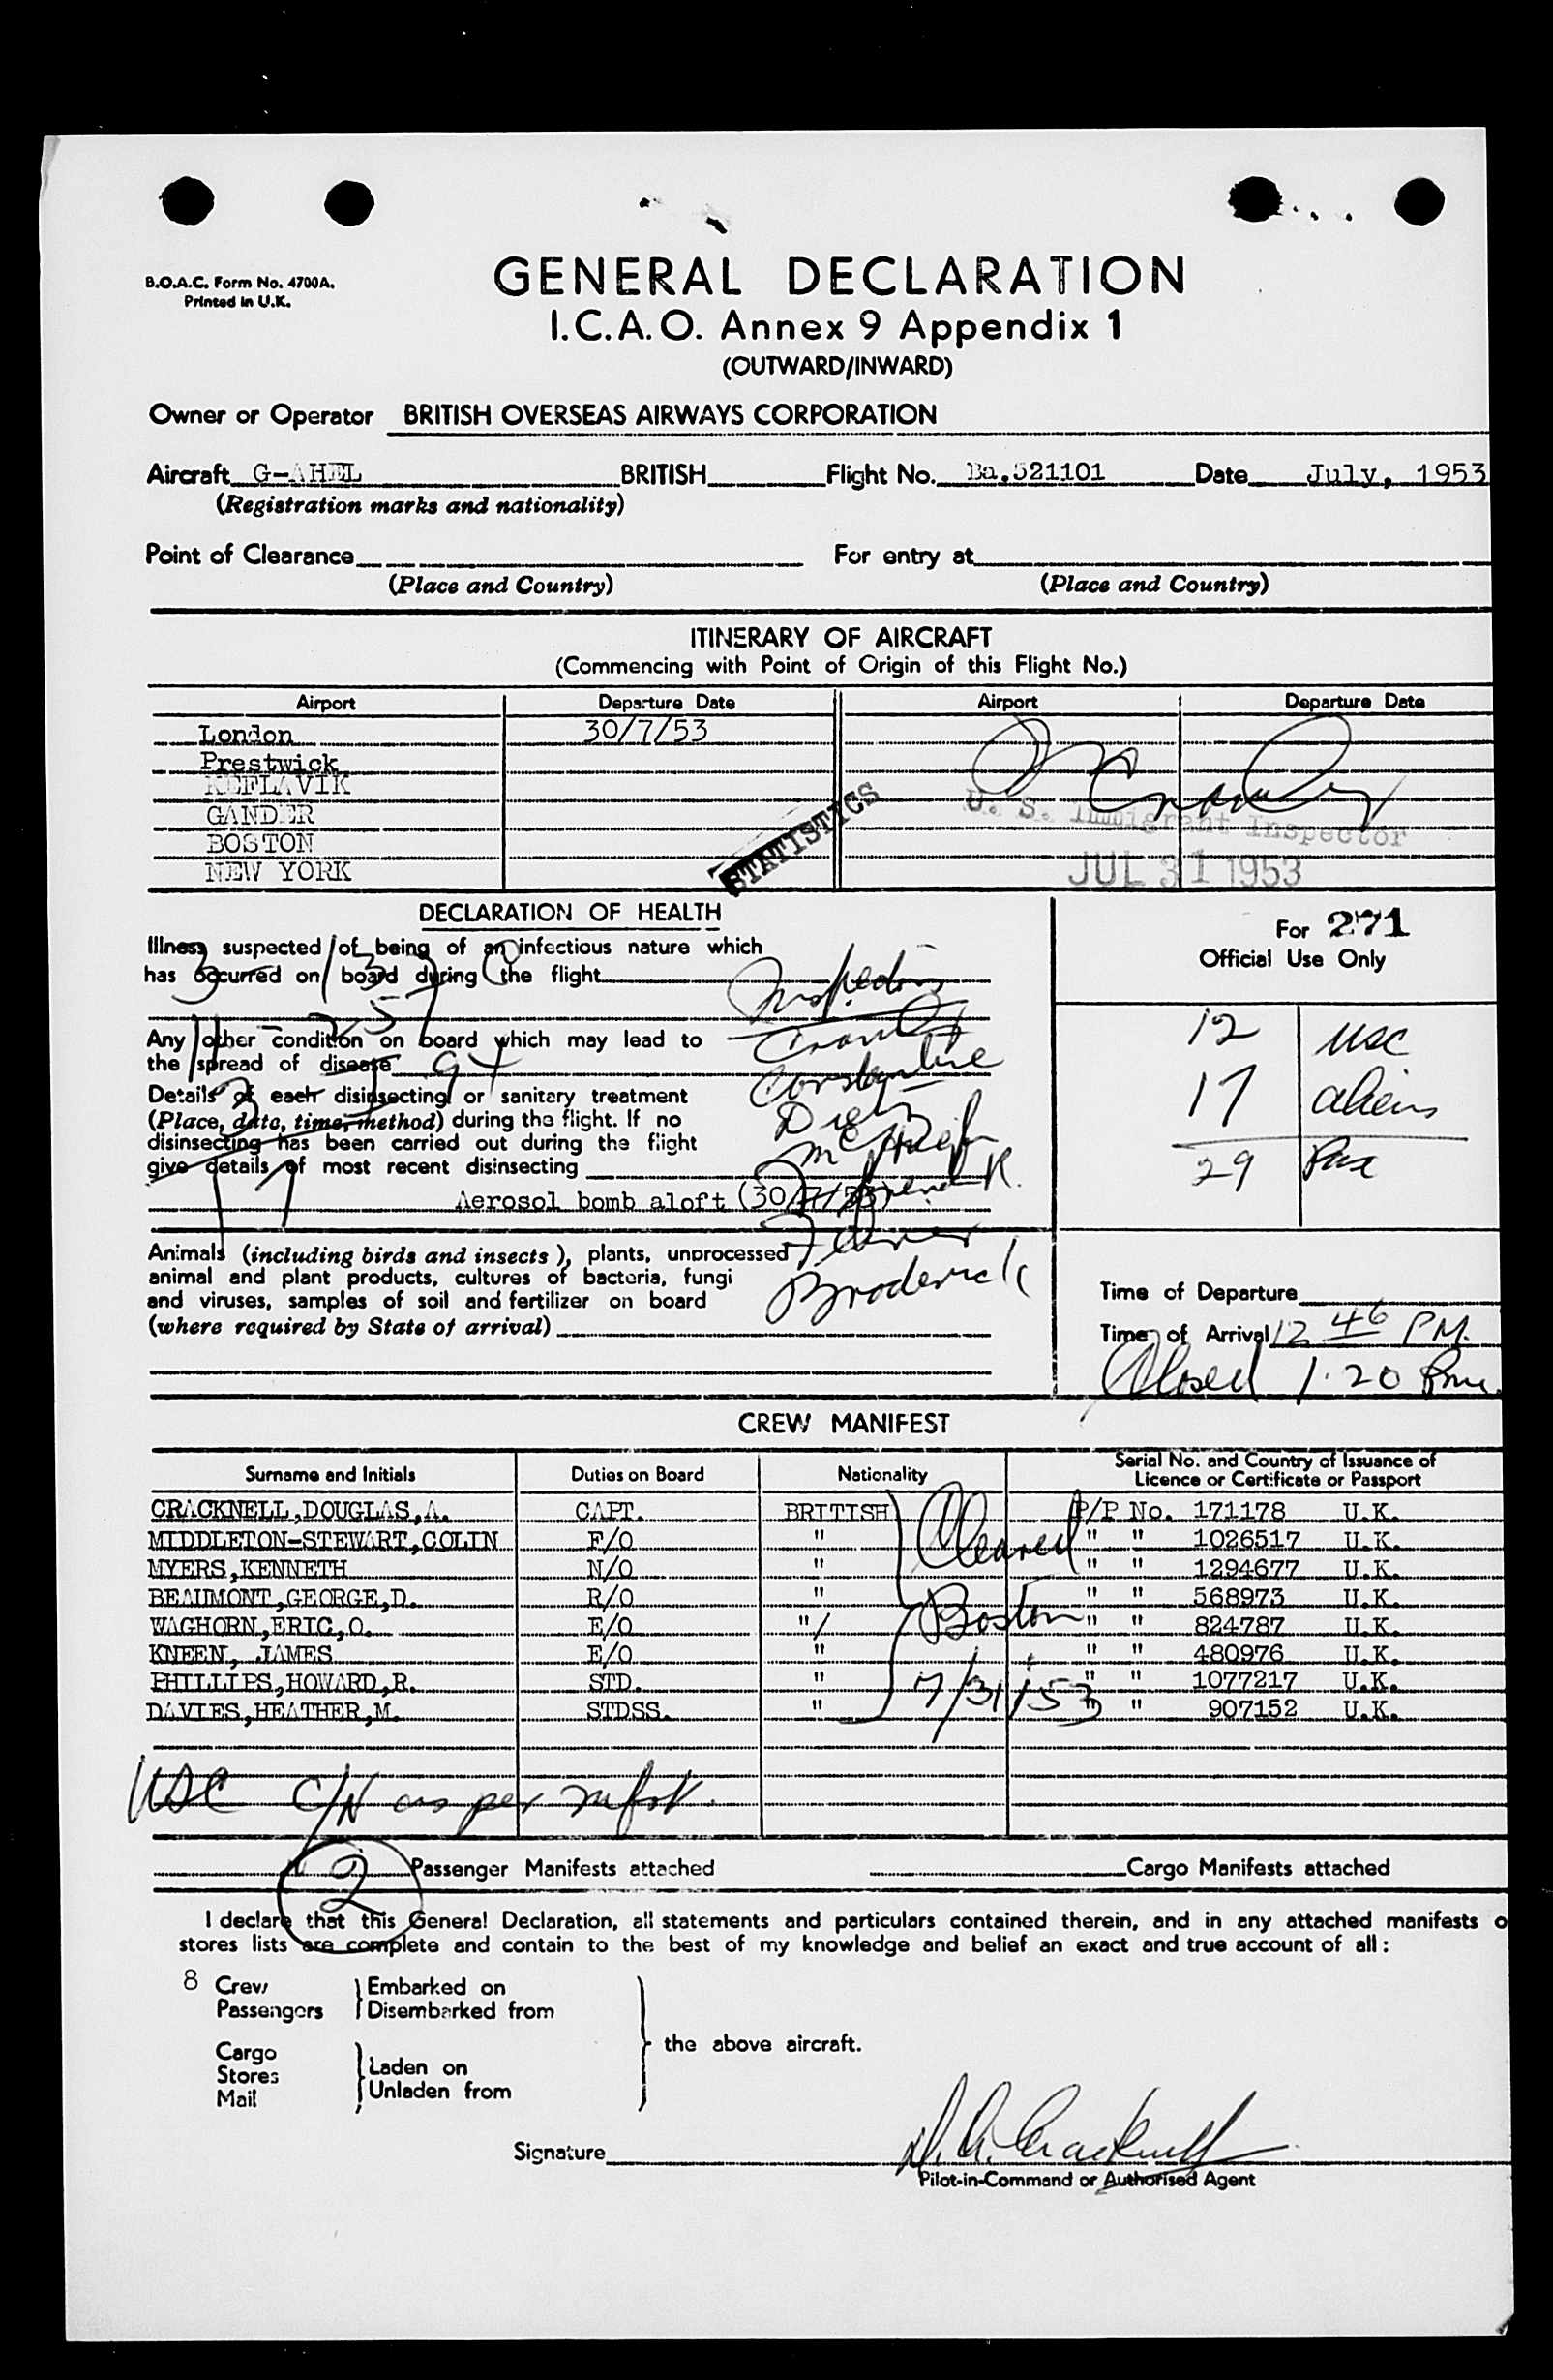 B.O.A.C. Form No. 4700A.
Printed in U.K.
GENERAL DECLARATION
I.C.A.O. Annex 9 Appendix 1
(OUTWARD/INWARD)
Owner or Operator BRITISH OVERSEAS AIRWAYS CORPORATION
Aircraft G-AHEL BRITISH Flight No. Ba.521101 Date July, 1953
(Registration marks and nationality)
Point of Clearance For entry at
(Place and Country) (Place and Country)
ITINERARY OF AIRCRAFT
(Commencing with Point of Origin of this Flight No.)
Airport Departure Date Airport Departure Date
London 30/7/53
Prestwick
KEFLAVIK
GANDER
BOSTON
NEW YORK
STATISTICS
U. S. Immigrant Inspector
JUL 31 1953
DECLARATION OF HEALTH
Illness suspected of being of an infectious nature which
has occurred on board during the flight
Any other condition on board which may lead to
the spread of disease
Details of each disinsecting or sanitary treatment
(Place, date, time, method) during the flight. If no
disinsecting has been carried out during the flight
give details of most recent disinsecting
Aerosol bomb aloft (30/7/53)
Animals (including birds and insects), plants, unprocessed
animal and plant products, cultures of bacteria, fungi
and viruses, samples of soil and fertilizer on board
(where required by State of arrival)
Constantine
Broderick
For 271
Official Use Only
12 USC
17 aliens
29 Pax
Time of Departure
Time of Arrival 12 46 PM.
Closed 1.20 Pm.
CREW MANIFEST
Surname and Initials Duties on Board Nationality Serial No. and Country of Issuance of
Licence or Certificate or Passport
CRACKNELL,DOUGLAS,A. CAPT. BRITISH P/P No. 171178 U.K.
MIDDLETON-STEWART,COLIN F/O " " " 1026517 U.K.
MYERS,KENNETH N/O " " " 1294677 U.K.
BEAUMONT,GEORGE,D. R/O " " " 568973 U.K.
WAGHORN,ERIC,O. E/O " " " 824787 U.K.
KNEEN, JAMES E/O " " " 480976 U.K.
PHILLIPS,HOWARD,R. STD. " " " 1077217 U.K.
DAVIES,HEATHER,M. STDSS. " " " 907152 U.K.
Cleared
Boston
7/31/53
USC C/N as per
2 Passenger Manifests attached Cargo Manifests attached
I declare that this General Declaration, all statements and particulars contained therein, and in any attached manifests o
stores lists are complete and contain to the best of my knowledge and belief an exact and true account of all :
8 Crew Embarked on
Passengers Disembarked from
the above aircraft.
Cargo
Stores Laden on
Mail Unladen from
Signature D.A. Cracknell
Pilot-in-Command or Authorised Agent